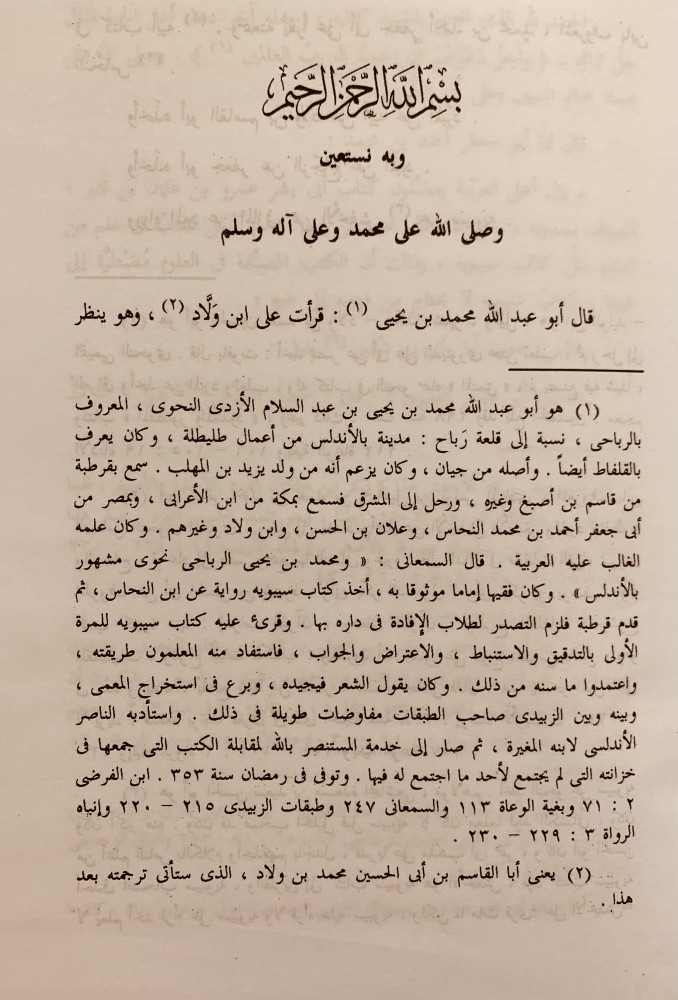 بِسْمِ اللَّهِ الرَّحْمَٰنِ الرَّحِيمِ
وبه نستعين
وصلى الله على محمد وعلى آله وسلم
قال أبو عبد الله محمد بن يحيى (١) : قرأت على ابن وَلَّاد (٢) ، وهو ينظر
(١) هو أبو عبد الله محمد بن يحيى بن عبد السلام الأزدى النحوى ، المعروف
بالرباحى ، نسبة إلى قلعة رَباح : مدينة بالأندلس من أعمال طليطلة ، وكان يعرف
بالقلفاط أيضاً . وأصله من جيان ، وكان يزعم أنه من ولد يزيد بن المهلب . سمع بقرطبة
من قاسم بن أصبغ وغيره ، ورحل إلى المشرق فسمع بمكة من ابن الأعرابى ، وبمصر من
أبى جعفر أحمد بن محمد النحاس ، وعلان بن الحسن ، وابن ولاد وغيرهم . وكان علمه
الغالب عليه العربية . قال السمعانى : « ومحمد بن يحيى الرباحى نحوى مشهور
بالأندلس » . وكان فقيها إماما موثوقا به ، أخذ كتاب سيبويه رواية عن ابن النحاس ، ثم
قدم قرطبة فلزم التصدر لطلاب الإفادة فى داره بها . وقرئ عليه كتاب سيبويه للمرة
الأولى بالتدقيق والاستنباط ، والاعتراض والجواب ، فاستفاد منه المعلمون طريقته ،
واعتمدوا ما سنه من ذلك . وكان يقول الشعر فيجيده ، وبرع فى استخراج المعمى ،
وبينه وبين الزبيدى صاحب الطبقات مفاوضات طويلة فى ذلك . واستأدبه الناصر
الأندلسى لابنه المغيرة ، ثم صار إلى خدمة المستنصر بالله لمقابلة الكتب التى جمعها فى
خزانته التى لم يجتمع لأحد ما اجتمع له فيها . وتوفى فى رمضان سنة ٣٥٣ . ابن الفرضى
٢ : ٧١ وبغية الوعاة ١١٣ والسمعانى ٢٤٧ وطبقات الزبيدى ٢١٥ – ٢٢٠ وإنباه
الرواة ٣ : ٢٢٩ – ٢٣٠ .
(٢) يعنى أبا القاسم بن أبى الحسين محمد بن ولاد ، الذى ستأتى ترجمته بعد
هذا .